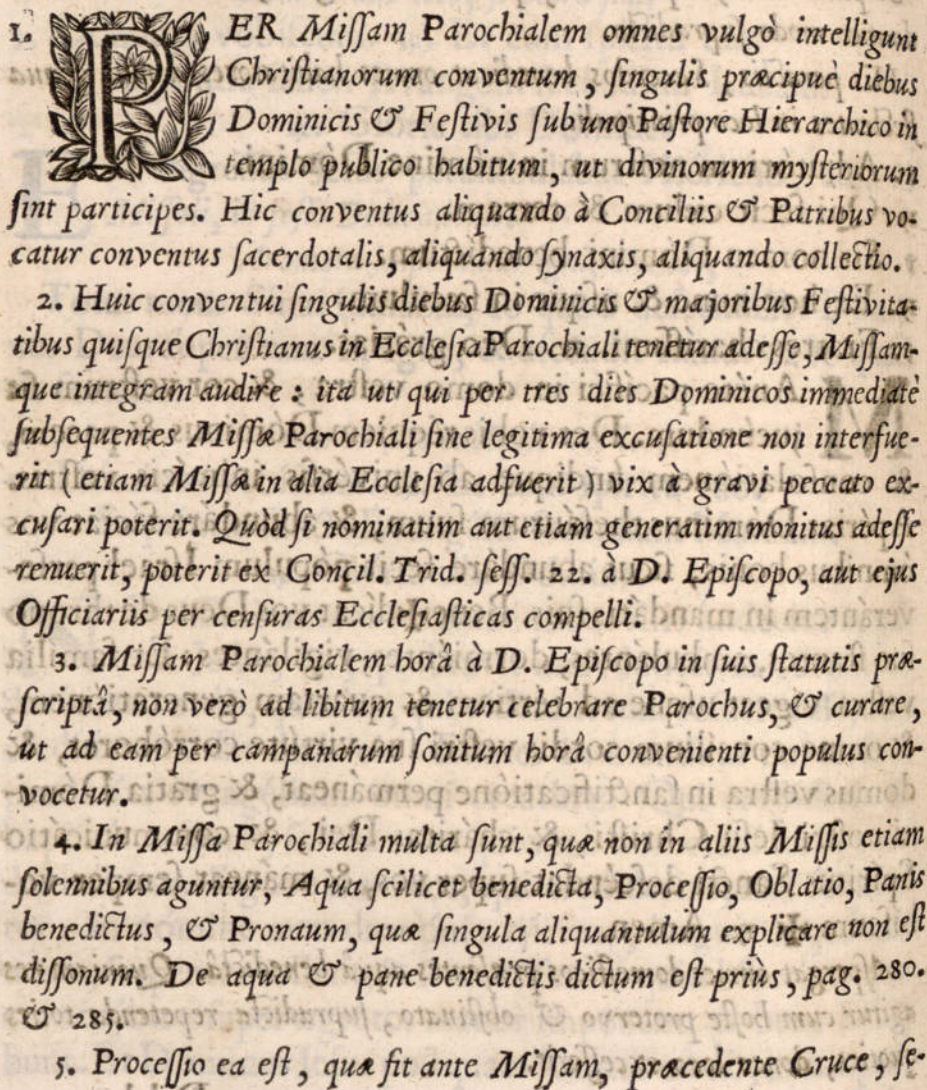 1. PER Miſſam Parochialem omnes vulgò intelligunt
Chriſtianorum conventum, ſingulis præcipuè diebus
Dominicis & Feſtivis ſub uno Paſtore Hierarchico in
templo publico habitum, ut divinorum myſteriorum
ſint participes. Hic conventus aliquando à Conciliis & Patribus vo-
catur conventus ſacerdotalis, aliquando ſynaxis, aliquando collectio.
2. Huic conventui ſingulis diebus Dominicis & majoribus Feſtivita-
tibus quiſque Chriſtianus in Eccleſia Parochiali tenetur adeſſe, Miſſam-
que integram audire: ita ut qui per tres dies Dominicos immediatè
ſubſequentes Miſſæ Parochiali ſine legitima excuſatione non interfue-
rit (etiam Miſſæ in alia Eccleſia adfuerit) vix à gravi peccato ex-
cuſari poterit. Quòd ſi nominatim aut etiam generatim monitus adeſſe
renuerit, poterit ex Concil. Trid. ſeſſ. 22. à D. Epiſcopo, aut ejus
Officiariis per cenſuras Eccleſiaſticas compelli.
3. Miſſam Parochialem horâ à D. Epiſcopo in ſuis ſtatutis præ-
ſcriptâ, non verò ad libitum tenetur celebrare Parochus, & curare,
ut ad eam per campanarum ſonitum horâ convenienti populus con-
vocetur.
4. In Miſſa Parochiali multa ſunt, quæ non in aliis Miſſis etiam
ſolennibus aguntur, Aqua ſcilicet benedicta, Proceſſio, Oblatio, Panis
benedictus, & Pronaum, quæ ſingula aliquantulum explicare non eſt
diſſonum. De aqua & pane benedictis dictum eſt priùs, pag. 280.
& 285.
5. Proceſſio ea eſt, quæ fit ante Miſſam, præcedente Cruce, ſe-